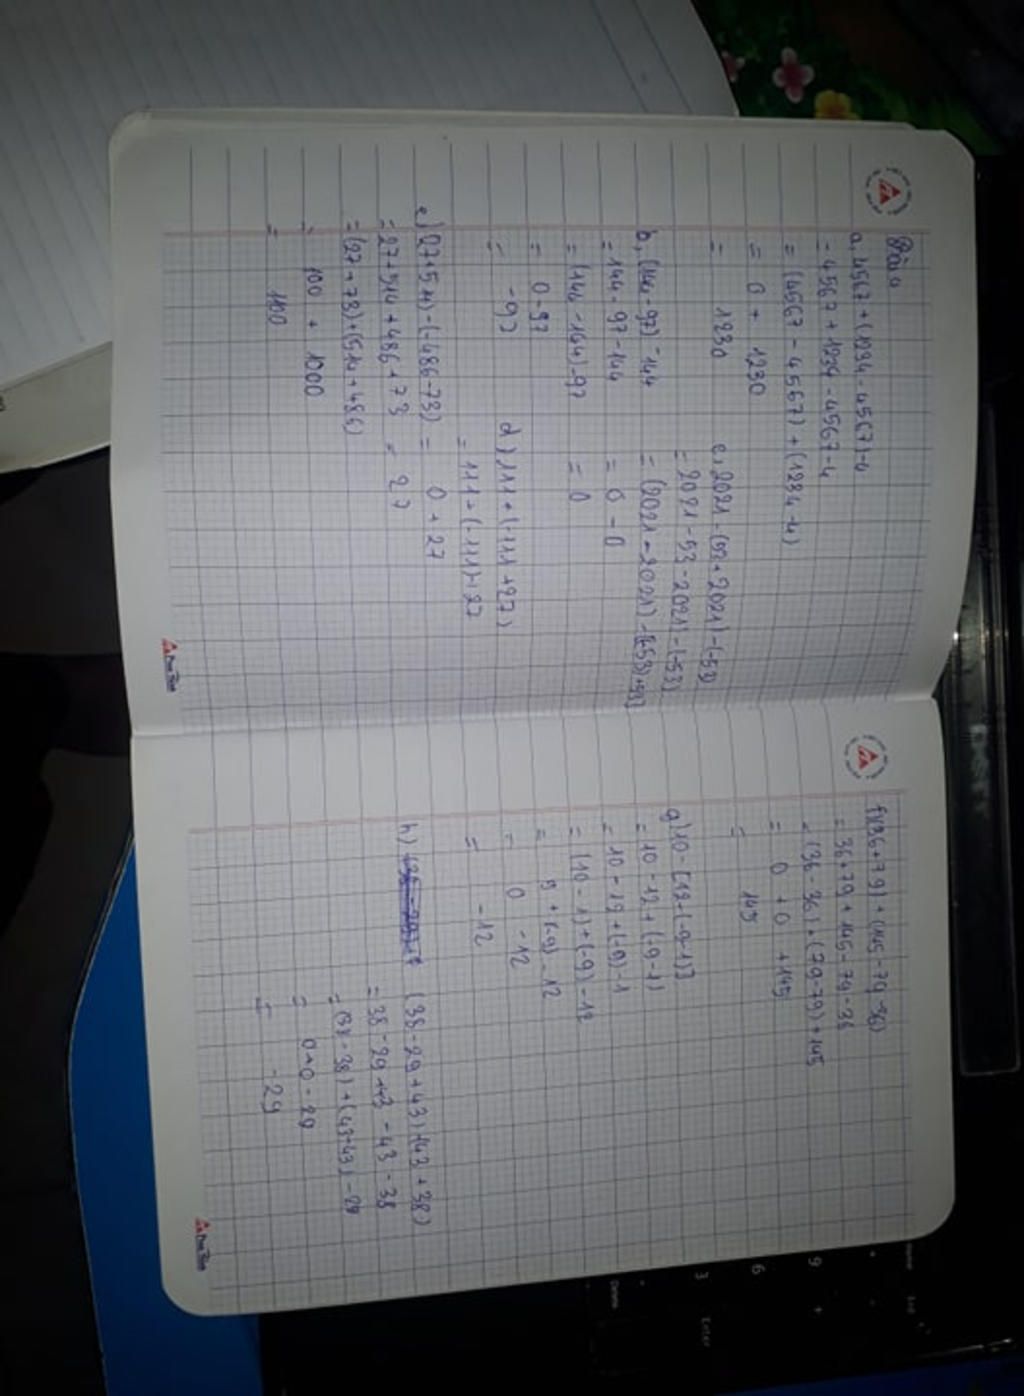 a, 4567 + (1234 - 4567) - 4
= 4567 + 1234 - 4567 - 4
= (4567 - 4567) + (1234 - 4)
= 0 + 1230
= 1230
b, (144 - 97) - 144
= 144 - 97 - 144
= (144 - 144) - 97
= 0 - 97
= -97
c, 2021 - (53 + 2021) - (-53)
= 2021 - 53 - 2021 - (-53)
= (2021 - 2021) - [(-53) + 53]
= 0 - 0
= 0
d) 111 + (-111 + 27)
= 111 + (-111) + 27
= 0 + 27
= 27
e) (27 + 514) - (-486 - 73)
= 27 + 514 + 486 + 73
= (27 + 73) + (514 + 486)
= 100 + 1000
= 1100
f) (36 + 79) + (145 - 79 - 36)
= 36 + 79 + 145 - 79 - 36
= (36 - 36) + (79 - 79) + 145
= 0 + 0 + 145
= 145
g) 10 - [12 - (-9 - 1)]
= 10 - 12 + (-9 - 1)
= 10 - 12 + (-9) - 1
= (10 - 1) + (-9) - 12
= 9 + (-9) - 12
= 0 - 12
= -12
h) (38 - 29 + 43) - (43 + 38)
= 38 - 29 + 43 - 43 - 38
= (38 - 38) + (43 - 43) - 29
= 0 + 0 - 29
= -29
9
6
3
Enter